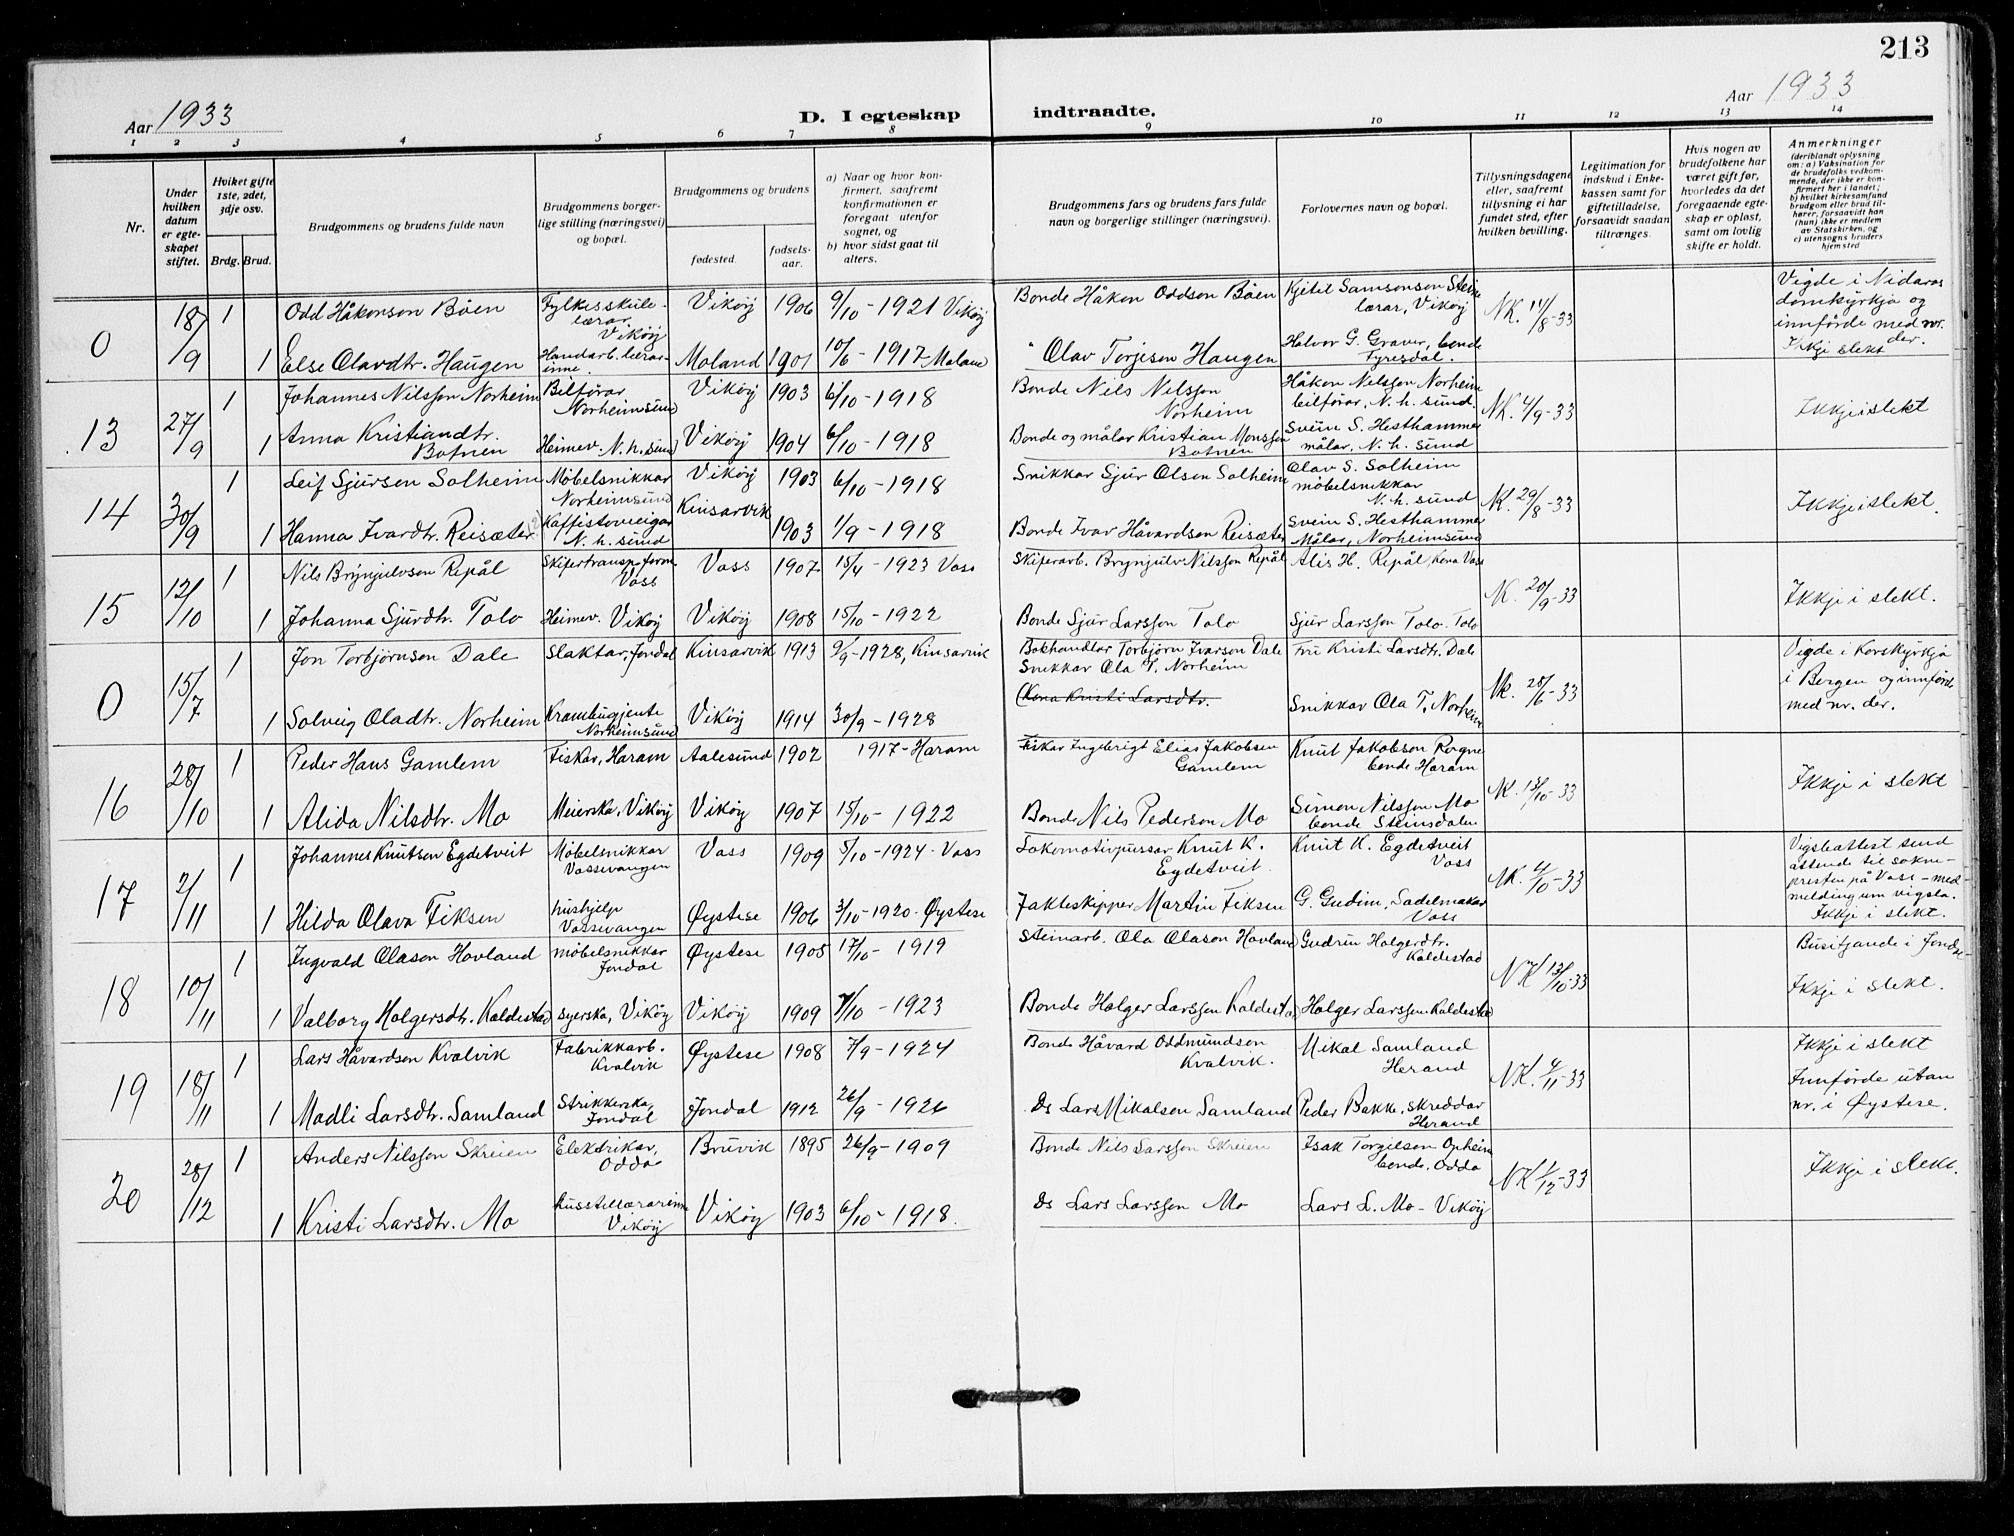 213
Aar 1933
D. I egteskap indtraadte.
Aar 1933
1 2 3 4 5 6 7 8 9 10 11 12 13 14
Nr.
Under hvilken datum er egteskapet stiftet.
Hviket gifte 1ste, 2det, 3dje osv.
Brdg. Brud.
Brudgommens og brudens fulde navn
Brudgommens borgerlige stilling (næringsvei) og bopæl.
Brudgommens og brudens
fødested.
fødselsaar.
a) Naar og hvor konfirmert, saafremt konfirmationen er foregaat utenfor sognet, og
b) hvor sidst gaat til alters.
Brudgommens fars og brudens fars fulde navn og borgerlige stillinger (næringsvei).
Forlovernes navn og bopæl.
Tillysningsdagene eller, saafremt tillysning ei har fundet sted, efter hvilken bevilling.
Legitimation for indskud i Enkekassen samt for giftetilladelse, forsaavidt saadan tiltrænges.
Hvis nogen av brudefolkene har været gift før, hvorledes da det foregaaende egteskap er opløst, samt om lovlig skifte er holdt.
Anmerkninger
(deriblandt oplysning om: a) Vaksination for de brudefolks vedkommende, der ikke er konfirmert her i landet; b) hvilket kirkesamfund brudgom eller brud tilhører, forsaavidt han (hun) ikke er medlem av Statskirken, og c) utensogns bruders hjemsted
0 18/9 1 Odd Håkonson Böen Fylkesskulelærar Vikøy Vikøy 1906 9/10 - 1921 Vikøy Bonde Håkon Oddson Böen Kjetil Samsonson Steine lærar, Vikøy NK. 14/8-33 Vigde i Nidaros domkyrkja og innförde med nr. der. Ikkje slekt
1 Else Olavdtr. Haugen Handarb. lærarinne. Moland 1901 10/6 - 1917 Moland " Olav Torjeson Haugen Halvor G. Graver, bonde Fyresdal.
13 27/9 1 Johannes Nilsson Norheim Bilförar Norheimsund Vikøy 1903 6/10 - 1918 Bonde Nils Nilsson Norheim Håkon Nilsson Norheim bilförar, N. h. sund. NK. 4/9-33 Ikkje i slekt
1 Anna Kristiandtr. Botnen Heimev. N. h. sund Vikøy 1904 6/10 - 1918 Bonde og målar Kristian Monsson Botnen Svein S. Hesthammer målar, N. h. sund
14 30/9 1 Leif Sjurson Solheim Möbelsnikkar Norheimsund Vikøy 1903 6/10 - 1918 Snikkar Sjur Olson Solheim Olav S. Solheim möbelsnikkar N. h. sund NK. 29/8-33 Ikkje i slekt.
1 Hanna Ivardtr. Reisæter Kaffistoveeigar N. h. sund Kinsarvik 1903 1/9 - 1918 Bonde Ivar Håvardson Reisæter Svein S. Hesthammer Målar, Norheimsund
15 12/10 1 Nils Brynjulvson Repål Skifertransp. form. Voss Voss 1907 15/4 - 1923 Voss Skiferarb. Brynjulv Nilsson Repål Alis H. Repål, kona Voss NK. 20/9-33 Ikkje i slekt.
1 Johanna Sjurdtr. Tolo Heimev. Vikøy Vikøy 1908 15/10 - 1922 Bonde Sjur Larsson Tolo Sjur Larsson Tolo. Tolo
0 15/7 1 Jon Torbjörnson Dale Slaktar, Jondal Kinsarvik 1913 9/9 - 1928, Kinsarvik Bokhandlar Torbjörn Ivarson Dale Fru Kristi Larsdtr. Dale Nk. 28/6-33 Vigde i Korskyrkja i Bergen og innförde med nr. der.
Snikkar Ola T. Norheim
1 Solveig Oladtr. Norheim Krambugjente Norheimsund Vikøy 1914 30/9 - 1928 (Kona Kristi Larsdtr. Snikkar Ola T. Norheim
16 28/10 1 Peder Hans Gamlem Fiskar, Haram Aalesund 1902 1917 - Haram Fiskar Ingebrigt Elias Jakobsen Gamlem Knut Jakobson Rogne bonde Haram NK. 13/10-33 Ikkje i slekt
1 Alida Nilsdtr. Mo Meierska, Vikøy Vikøy 1907 15/10 - 1922 Bonde Nils Pederson Mo Simon Nilsson Mo bonde Steinsdalen
17 2/11 1 Johannes Knutson Egdetveit Möbelsnikkar Vossevangen Voss 1909 5/10 - 1924 - Voss Lokomotivpussar Knut K. Egdetveit Knut K. Egdetveit Voss NK. 4/10-33 Vigsleattest send attende til sokne-presten på Voss - med melding um vigsla. Ikkje i slekt.
1 Hilda Olava Fiksen hushjelp Vossevangen Øystese 1906 3/10 - 1920. Øystese Jakteskipper Martin Fiksen G. Gudim, Sadelmakar Voss
18 10/11 1 Ingvald Olason Hovland möbelsnikkar Jondal Øystese 1905 17/10 - 1919 Steinarb. Ola Olason Hovland Gudrun Holgerdtr. Kaldestad NK 13/10-33 Busitjande i Jondal- Ikkje i slekt.
1 Valborg Holgersdtr. Kaldestad syerska, Vikøy Vikøy 1909 7/10 - 1923 Bonde Holger Larsson Kaldestad Holger Larsson Kaldestad
19 18/11 1 Lars Håvardson Kvalvik Fabrikkarb. Kvalvik Øystese 1908 7/9 - 1924 Bonde Håvard Oddmundson Kvalvik. Mikal Samland Herand NK. 4/11-33 Ikkje i slekt Innförde utan nr. i Øystese.
1 Madli Larsdtr. Samland Strikkerska, Jondal Jondal 1912 26/9 - 1926 Ds Lars Mikalson Samland Peder Bakke, skreddar Herand
20 28/12 1 Anders Nilsson Skreien Elektrikar, Odda Bruvik 1895 26/9 - 1909 Bonde Nils Larsson Skreien Isak Torgilson Opheim bonde, Odda NK 1/12-33 Ikkje i slekt.
1 Kristi Larsdtr. Mo husstellærarinne Vikøy Vikøy 1903 6/10 - 1918. Ds Lars Larsson Mo Lars L. Mo - Vikøy